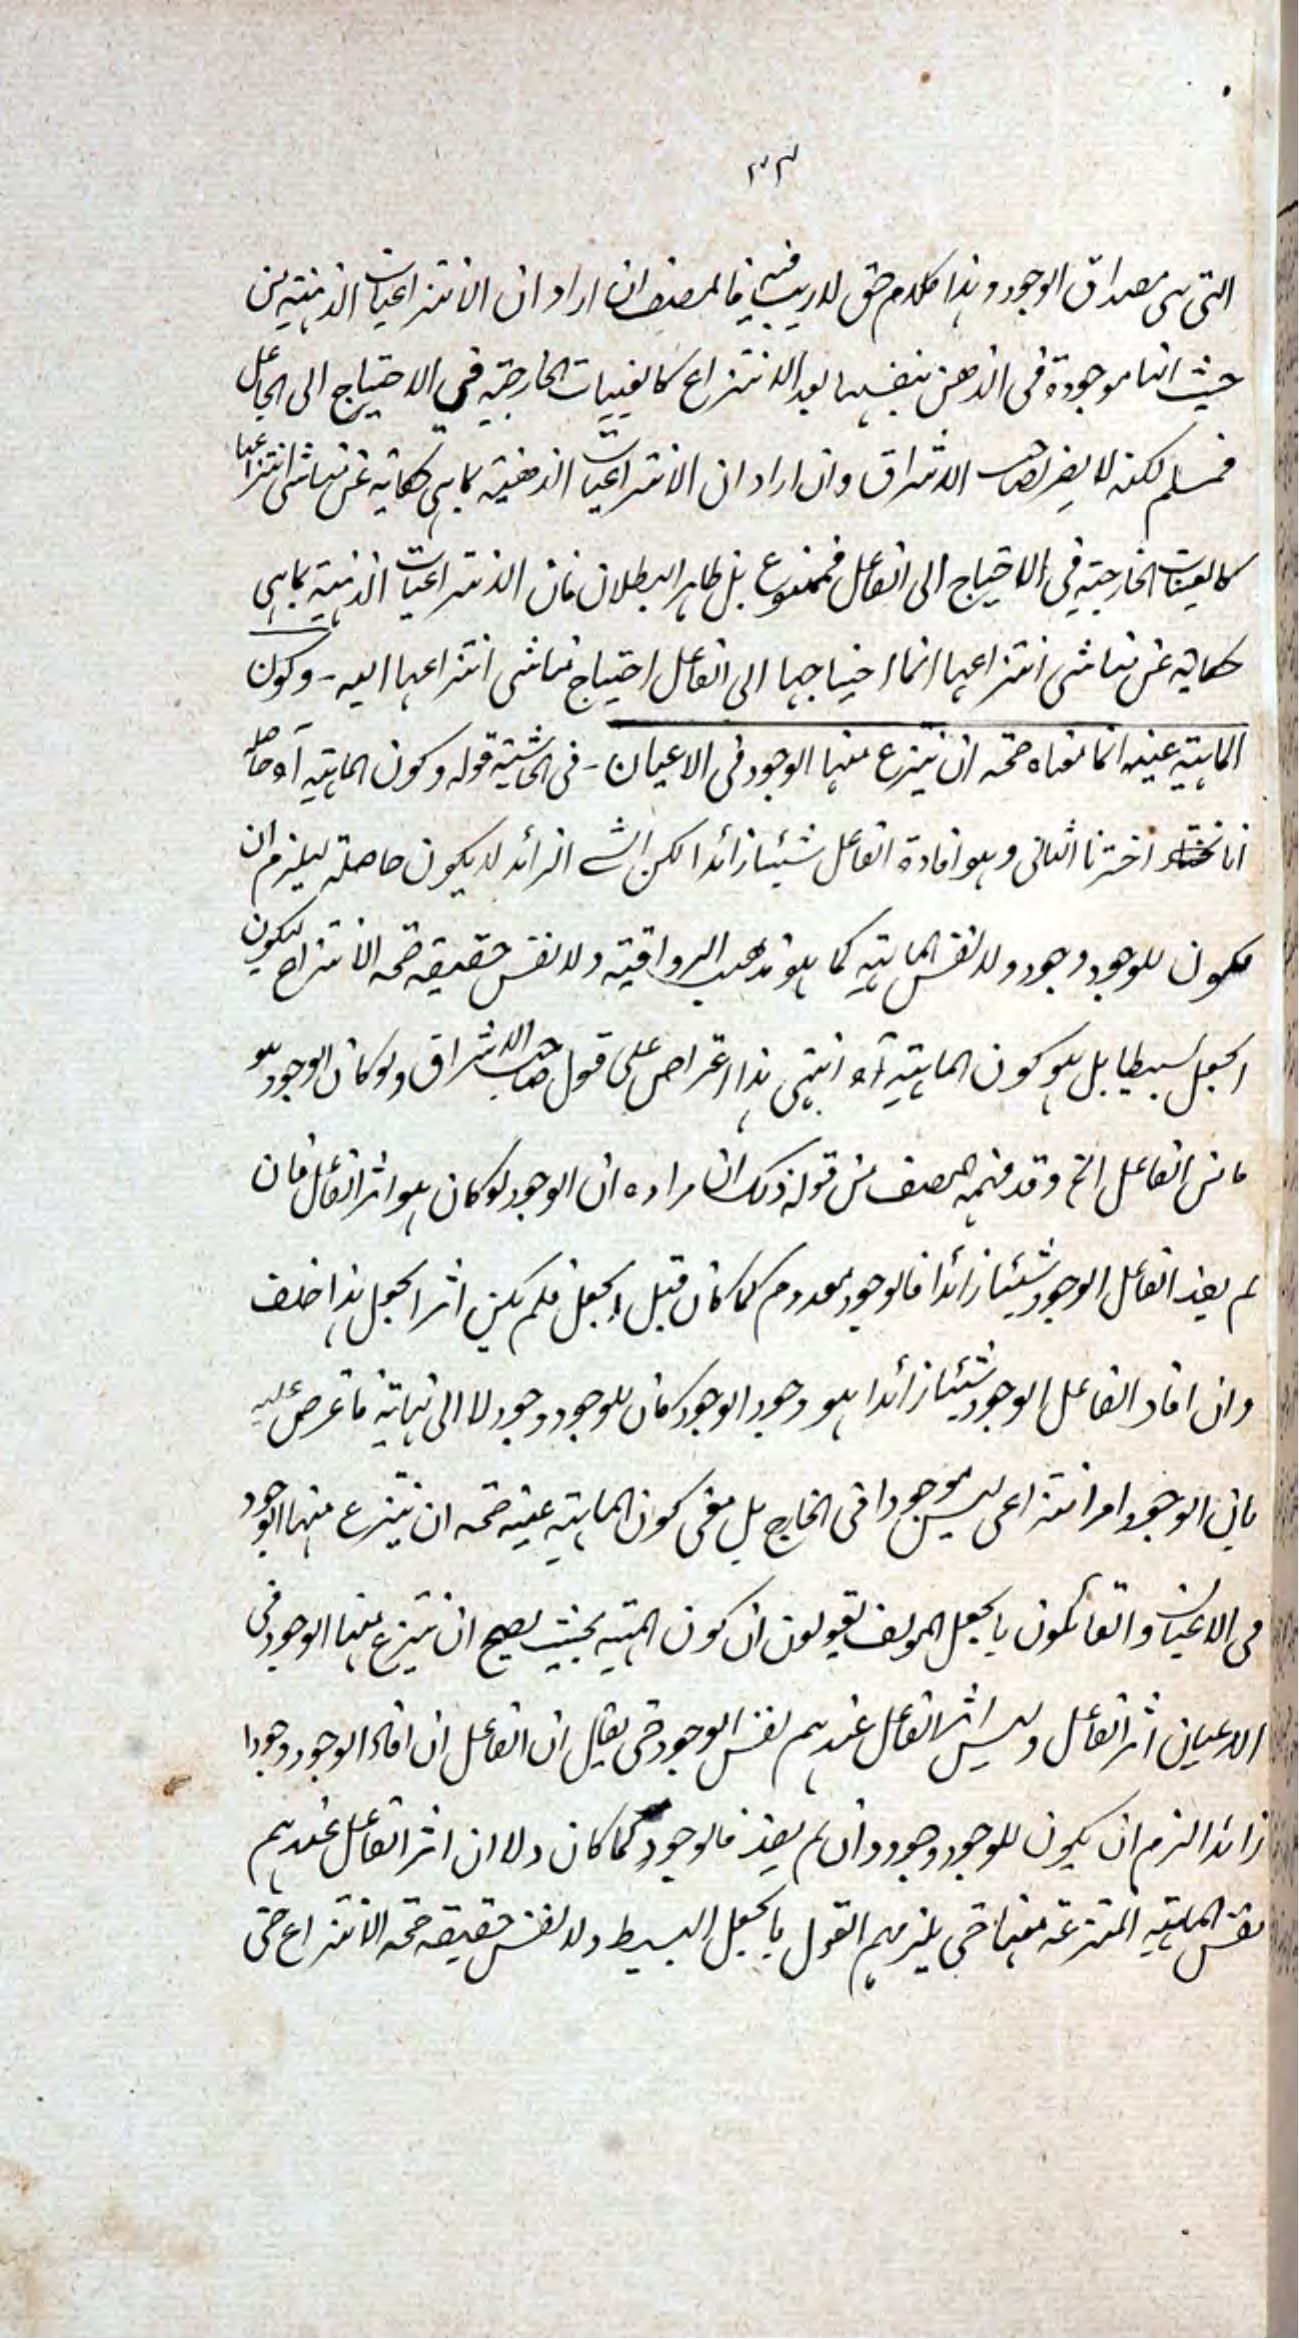 ٣٣
التي هي مصداق الوجود وهذا كلام حق لا ريب فيه فالمصنف ان اراد ان الانتزاعيات الذهنية من
حيث انها موجودة في الذهن بنفسها بعد الانتزاع كالعينيات الخارجية في الاحتياج الى الجاعل
فمسلم لكنه لا يضر صاحب الاشراق وان اراد ان الانتزاعيات الذهنية بما هي حكاية عن مناشي انتزاعها
كالعينيات الخارجية في الاحتياج الى الفاعل فممنوع بل ظاهر البطلان فان الانتزاعيات الذهنية بما هي
حكاية عن مناشي انتزاعها انما احتياجها الى الفاعل احتياج مناشي انتزاعها اليه - وكون
الماهية عينه انما معناه صحة ان ينتزع منها الوجود في الاعيان - في الحاشية قوله وكون الماهية آه حاصله
انا اخترنا الثاني وهو افادة الفاعل شيئا زائدا لكن الشے الزائد لا يكون حاصلة ليلزم ان
يكون للوجود وجود ولا نفس الماهية كما هو مذهب الرواقية ولا نفس حقيقة صحة الانتزاع ليكون
الجعل بسيطا بل هو كون الماهية آه انتهى هذا اعتراض على قول صاحب الاشراق ولو كان الوجود هو
ما من الفاعل الخ وقد فهم المصنف من قوله ذلك ان مراده ان الوجود لو كان هو اثر الفاعل فان
لم يفد الفاعل الوجود شيئا زائدا فالوجود معدوم كما كان قبل الجعل فلم يكن اثر الجعل هذا خلف
وان افاد الفاعل الوجود شيئا زائدا هو وجود الوجود كان للوجود وجود لا الى نهاية فاعترض عليه
بان الوجود امر انتزاعي ليس موجودا في الخارج بل معنى كون الماهية عينه صحة ان ينتزع منها الوجود
في الاعيان والقائلون بالجعل المولف يقولون ان كون المهية بحيث يصح ان ينتزع منها الوجود في
الاعيان اثر الفاعل وليس اثر الفاعل عندهم نفس الوجود حتى يقال ان الفاعل ان افاد الوجود وجودا
زائدا لزم ان يكون للوجود وجود وان لم يفد فالوجود كما كان ولا ان اثر الفاعل عندهم
نفس الماهية المنتزعة عنها حتى يلزمهم القول بالجعل البسيط ولا نفس حقيقة صحة الانتزاع حتى